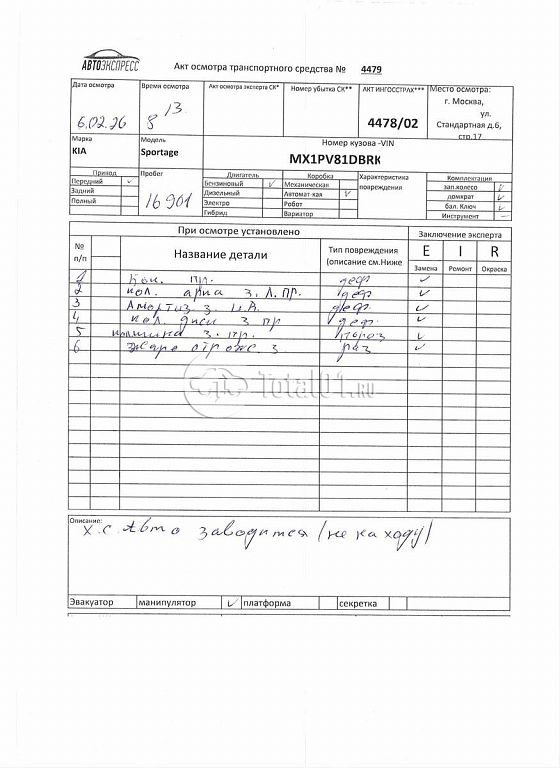 АВТОЭКСПРЕСС
Акт осмотра транспортного средства № 4479
Дата осмотра
6.02.26
Время осмотра
8 13
Акт осмотра эксперта СК*
Номер убытка СК**
АКТ ИНГОССТРАХ***
4478/02
Место осмотра:
г. Москва,
ул.
Стандартная д.6,
стр.17
Марка
KIA
Модель
Sportage
Номер кузова -VIN
MX1PV81DBRK
Привод
Передний ✓
Задний
Полный
Пробег
16901
Двигатель
Бензиновый ✓
Дизельный
Электро
Гибрид
Коробка
Механическая
Автомат-кая ✓
Робот
Вариатор
Характеристика
повреждения
Комплектация
зап.колесо ✓
домкрат ✓
бал. Ключ ✓
Инструмент –
При осмотре установлено
Заключение эксперта
№
п/п
Название детали
Тип повреждения
(описание см.Ниже
E I R
Замена Ремонт Окраска
1 пр. деф ✓
2 кол. арка з. л. пр. деф ✓
3 Амортиз. з. деф. ✓
4 кол. диск з пр деф. ✓
5 з. пр. ✓
6 отраж. з раз ✓
Total01.RU
Описание:
х.с Авто заводится (не на ходу)
Эвакуатор манипулятор ✓ платформа секретка